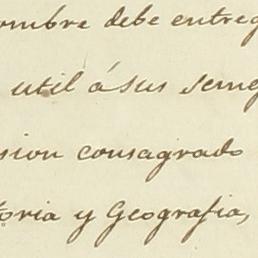 ombre debe entreg
util á sus semej
sion consagrado
toria y Geografia,